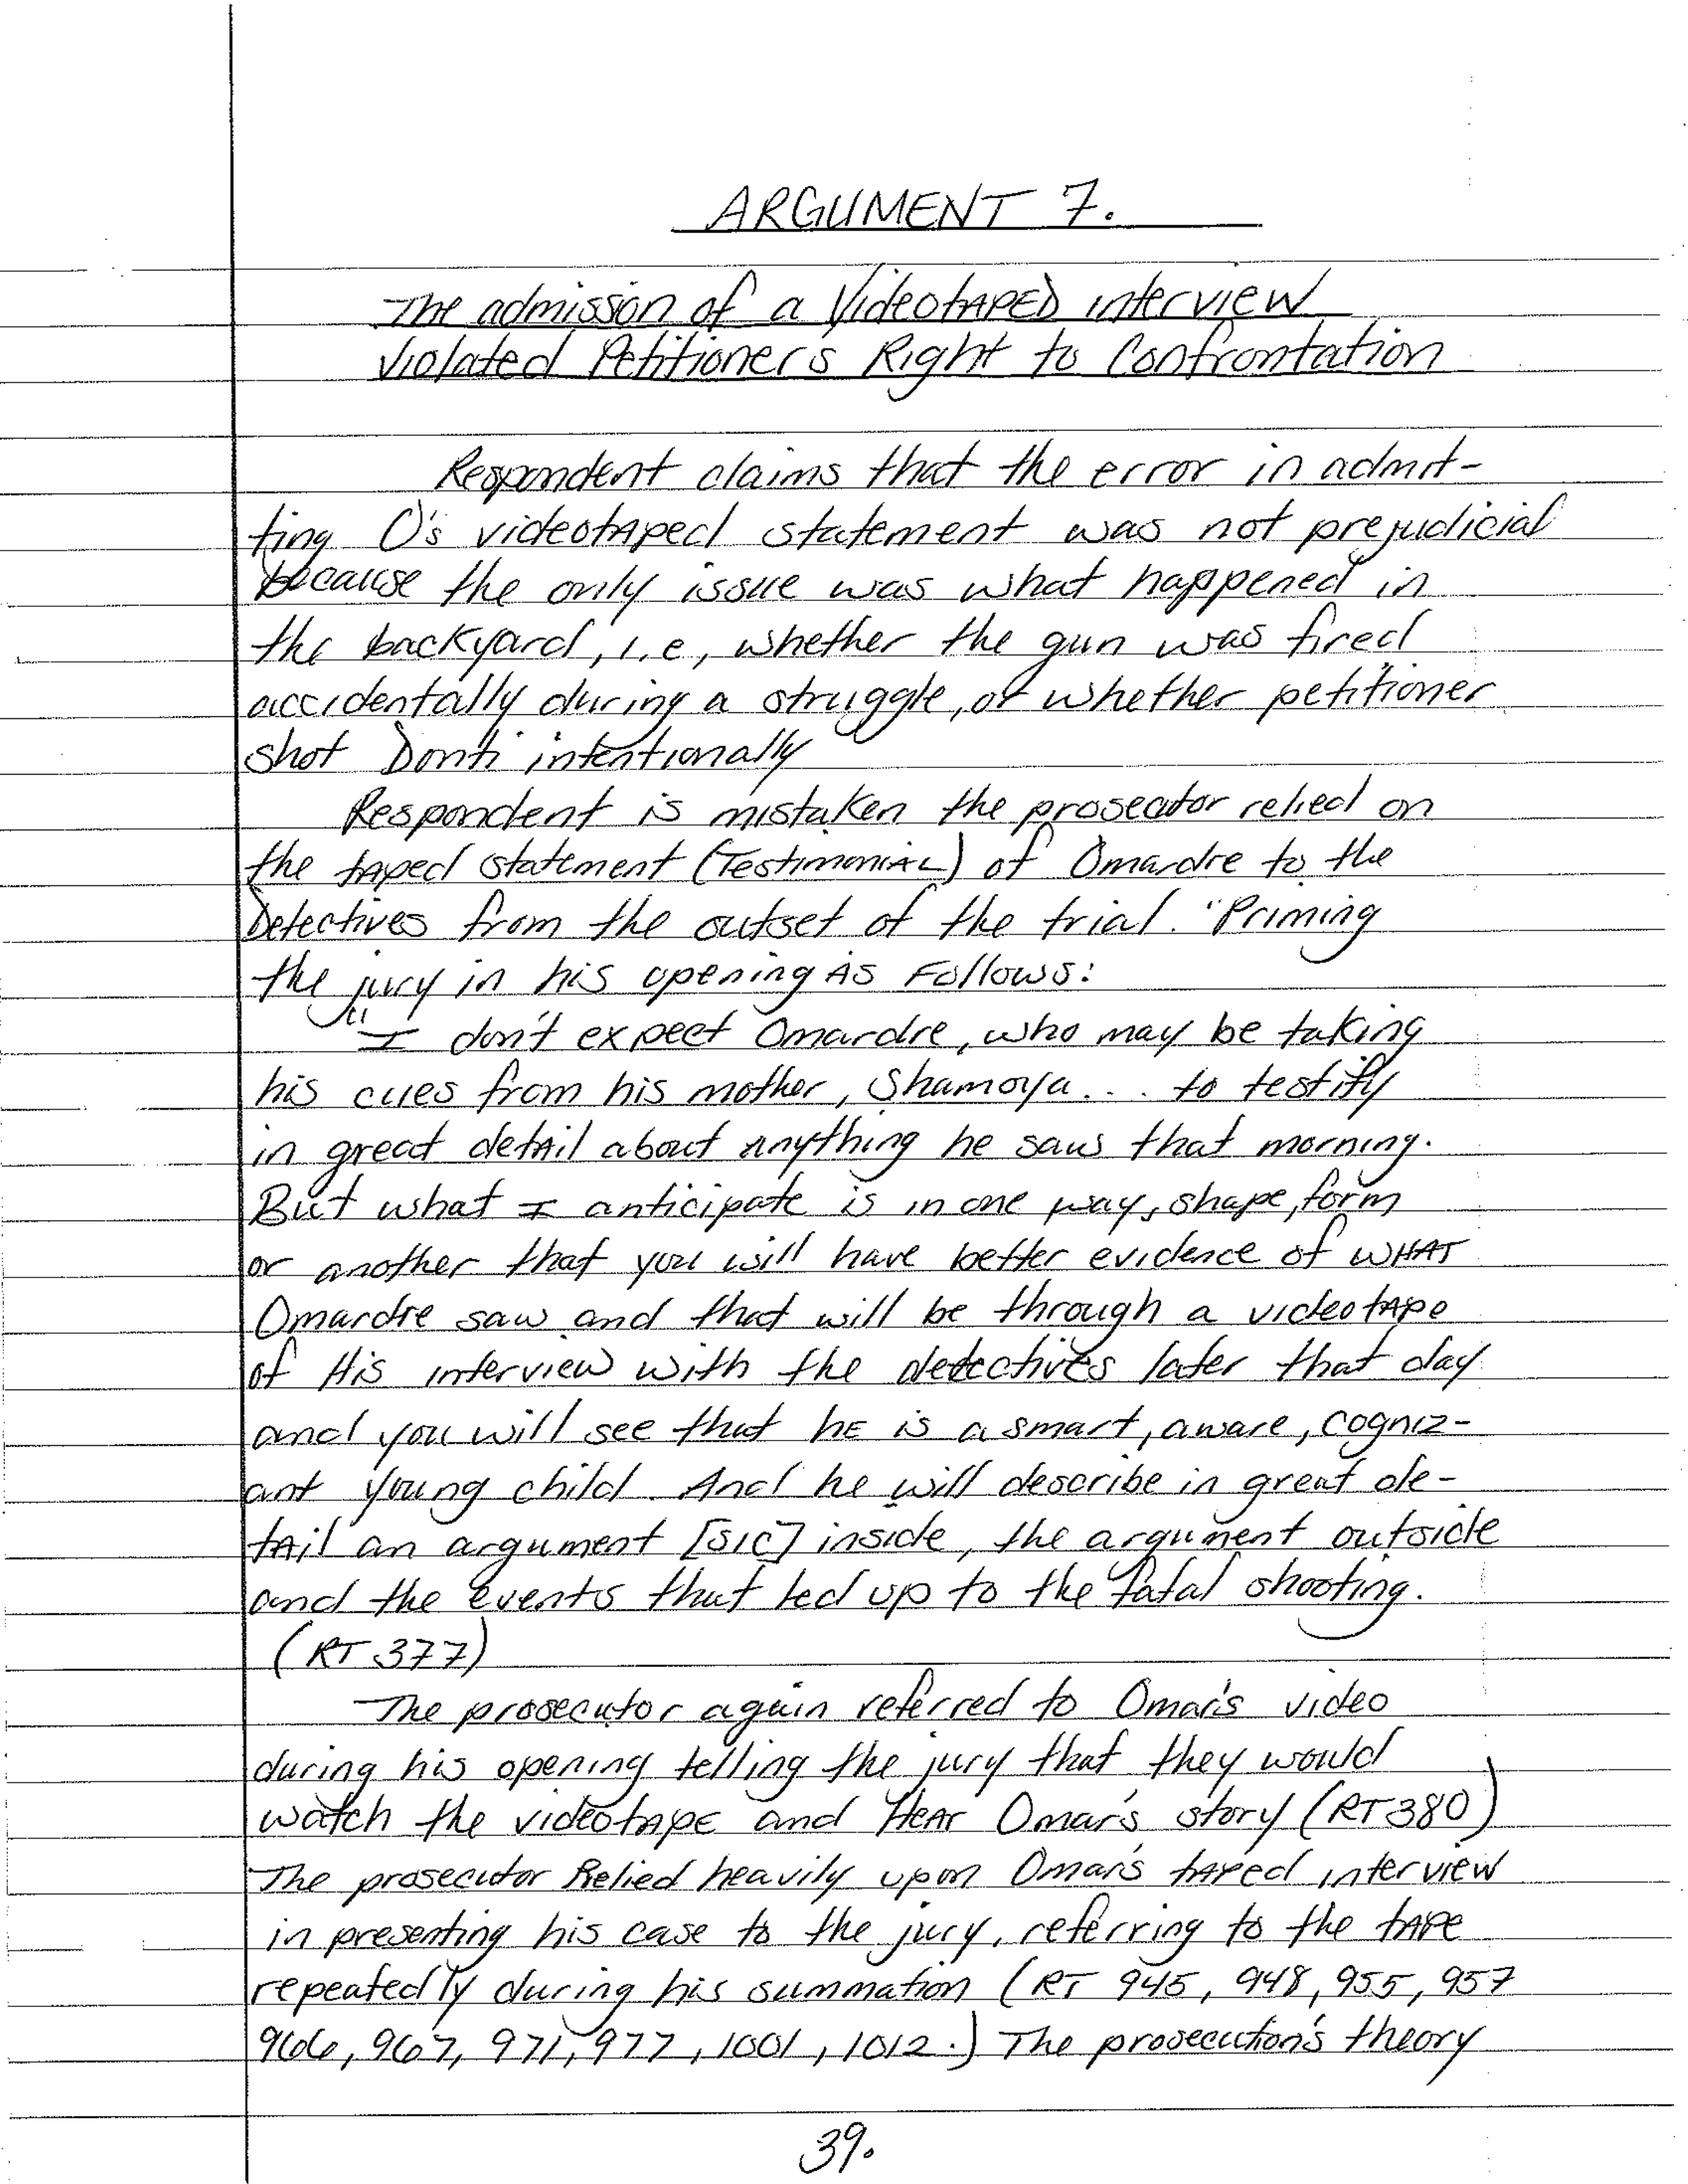 ARGUMENT 7.
The admission of a VideotAPED interview
violated Petitioners Right to Confrontation
Respondent claims that the error in admit-
ting O's videotAped statement was not prejudicial
because the only issue was what happened in
the backyard, i.e, whether the gun was fired
accidentally during a struggle, or whether petitioner
shot Donti intentionally
Respondent is mistaken the prosecutor relied on
the tAped statement (TestimoniAL) of Omardre to the
Detectives from the outset of the trial. "Priming
the jury in his opening AS Follows:
"I don't expect Omardre, who may be taking
his cues from his mother, Shamoya... to testify
in great detAil about Anything he saw that morning.
But what I anticipate is in one way, shape, form
or another that you will have better evidence of WHAT
Omardre saw and that will be through a videotAPe
of His interview with the detectives later that day
and you will see that hE is a smart, aware, cogniz-
ant young child. And he will describe in great de-
tAil an argument [SIC] inside, the argument outside
and the events that led up to the fatal shooting.
(RT 377)
The prosecutor again referred to Omar's video
during his opening telling the jury that they would
watch the videotAPE and HeAr Omar's story (RT 380)
The prosecutor Relied heavily upon Omar's tAped interview
in presenting his case to the jury, referring to the tAPe
repeatedly during his summation (RT 945, 948, 955, 957
966, 967, 971, 977, 1001, 1012.) The prosecution's theory
39.